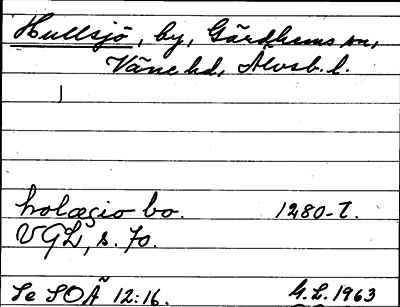 Hullsjö, by, Gärdhems sn,
Väne hd, Älvsb. l.
holæsio bo. 1280-t.
VGL, s. 70.
Se SOÄ 12:16. G.L. 1963